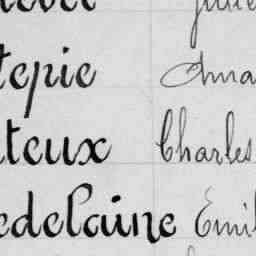 tepie Ama
teux Charles
edelaine Emil